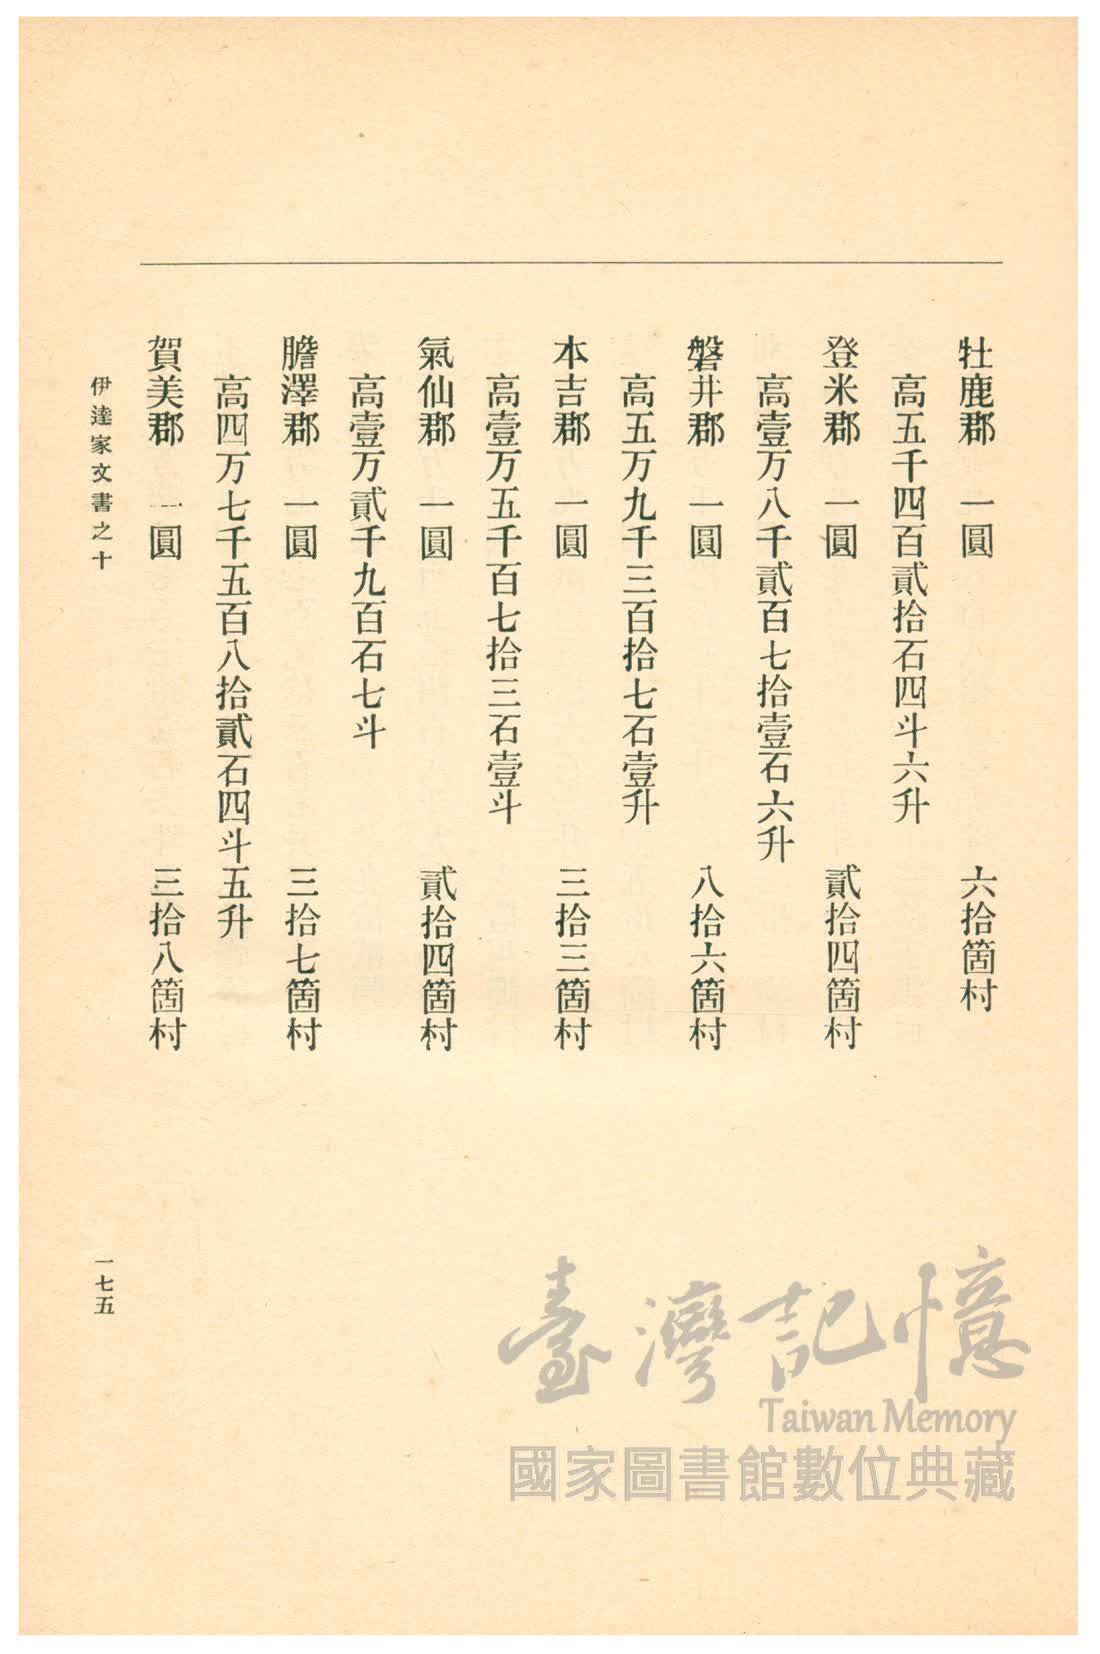 牡鹿郡 一圓 六拾箇村
高五千四百貳拾石四斗六升
登米郡 一圓 貳拾四箇村
高壹万八千貳百七拾壹石六升
磐井郡 一圓 八拾六箇村
高五万九千三百拾七石壹升
本吉郡 一圓 三拾三箇村
高壹万五千百七拾三石壹斗
氣仙郡 一圓 貳拾四箇村
高壹万貳千九百石七斗
膽澤郡 一圓 三拾七箇村
高四万七千五百八拾貳石四斗五升
賀美郡 一圓 三拾八箇村
伊達家文書之十
一七五
臺灣記憶
Taiwan Memory
國家圖書館數位典藏